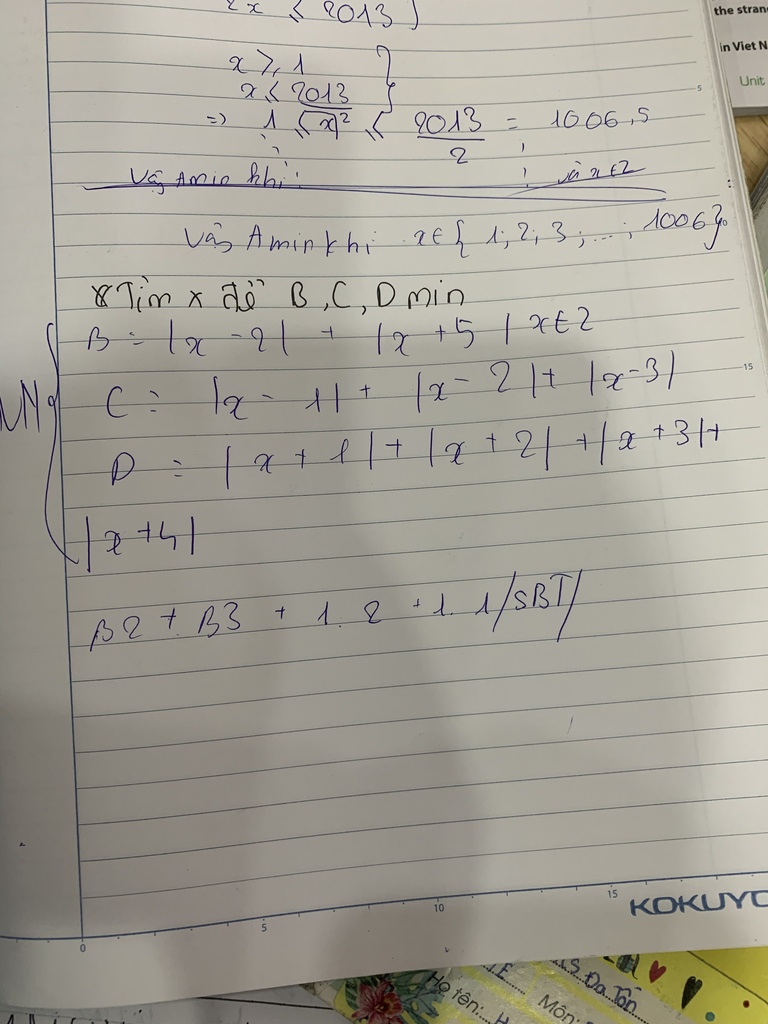 2x ≤ 2013 }
the stran
in Viet N
Unit
x ≥ 1
x ≤ 2013
5
=> 1 ≤ x ≤ 2013/2 = 1006,5
Vậy Amin khi: và x ∈ Z
Vậy Amin khi x ∈ { 1; 2; 3; ...; 1006}
* Tìm x để B, C, D min
B = |x - 2| + |x + 5| x ∈ Z
15
C = |x - 1| + |x - 2| + |x - 3|
VN
D = |x + 1| + |x + 2| + |x + 3| +
|x + 4|
B2 + B3 + 1.2 + 1.1 /SBT/
0 5 10 15
KOKUYO
Họ tên: H
Môn:
S Đa Tôn